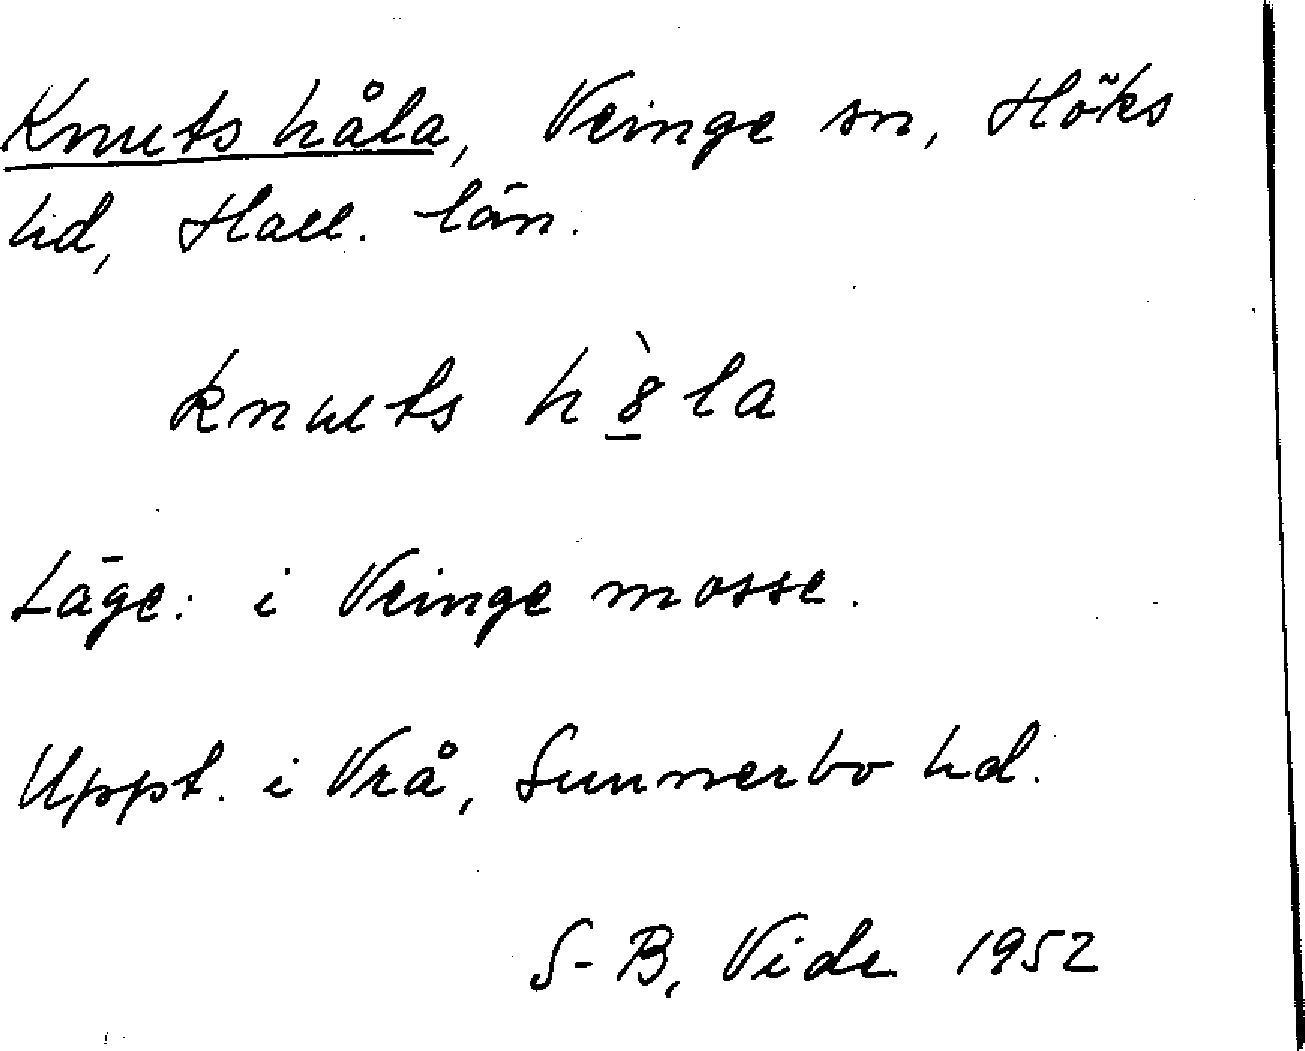 Knuts håla, Veinge sn, Höks
hd, Hall. län.
knuts h8̱̀la
Läge: i Veinge mosse.
Uppt. i Vrå, Sunnerbo hd.
S-B, Vide 1952